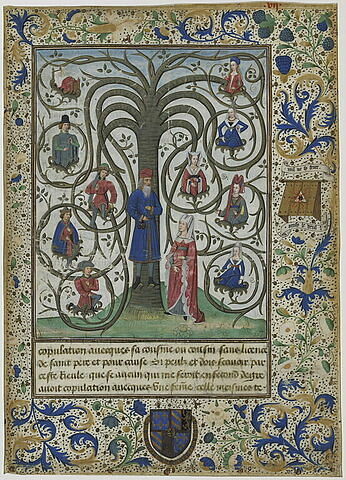 copulation avecques sa cousine ou cousin sans licence
de saint pere et pour cause Si peulx et dois scauoir par
ceste rieule que se aucun qui me seroit en second degre
auoit copulation avecques vne feme celle mesmes te